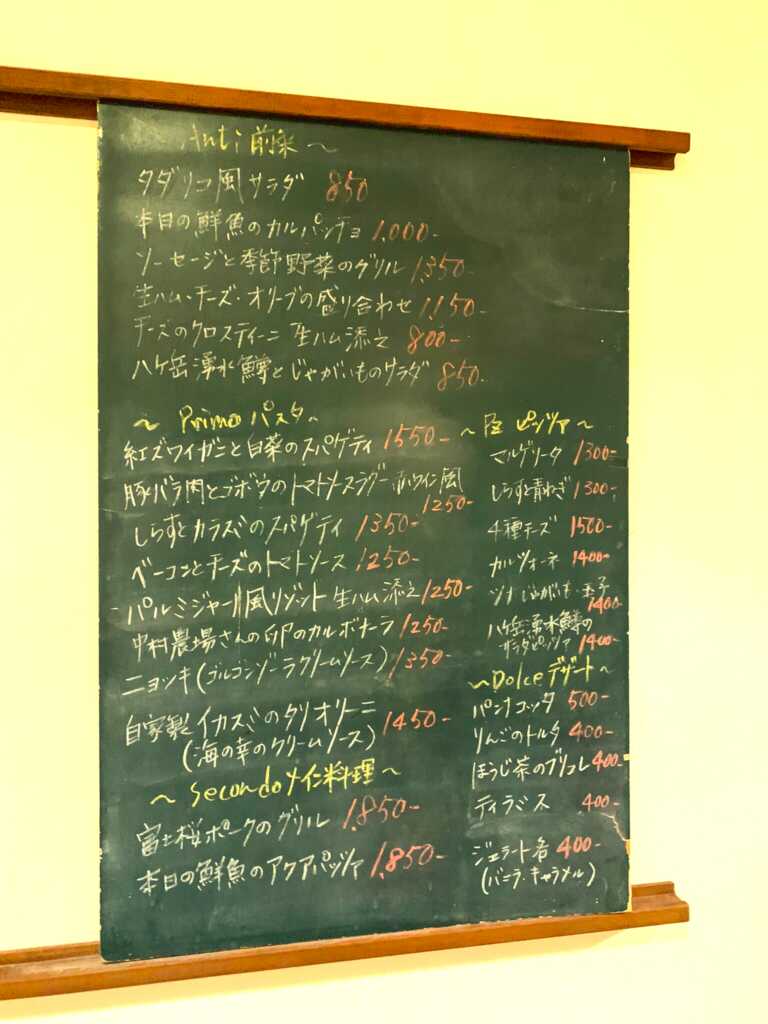 Anti 前菜 ~
タダリコ風サラダ 850
本日の鮮魚のカルパッチョ 1,000-
ソーセージと季節野菜のグリル 1,350-
生ハム・チーズ・オリーブの盛り合わせ 1,150-
チーズのクロスティーニ 生ハム添え 800-
八ケ岳湧水鱒とじゃがいものサラダ 850-
~ Primo パスタ ~
紅ズワイガニと白菜のスパゲティ 1550-
豚バラ肉とゴボウのトマトソースラグー 赤ワイン風
1250-
しらすとカラスミのスパゲティ 1350-
ベーコンとチーズのトマトソース 1250-
パルミジャーノ風リゾット 生ハム添え 1250-
中村農場さんの卵のカルボナーラ 1250-
ニョッキ(ゴルゴンゾーラクリームソース) 1350-
自家製イカスミのタリオリーニ
(海の幸のクリームソース) 1450-
~ Secondo メイン料理 ~
富士桜ポークのグリル 1,850-
本日の鮮魚のアクアパッツァ 1,850-
ピッツァ ~
マルゲリータ 1300-
しらすと青ねぎ 1300-
4種チーズ 1500-
カルツォーネ 1400-
ツナ じゃがいも 玉子
1400-
八ケ岳湧水鱒の
サラダピッツァ 1400-
~ Dolce デザート ~
パンナコッタ 500-
りんごのトルタ 400-
ほうじ茶のブリュレ 400-
ティラミス 400-
ジェラート各 400-
(バニラ・キャラメル)